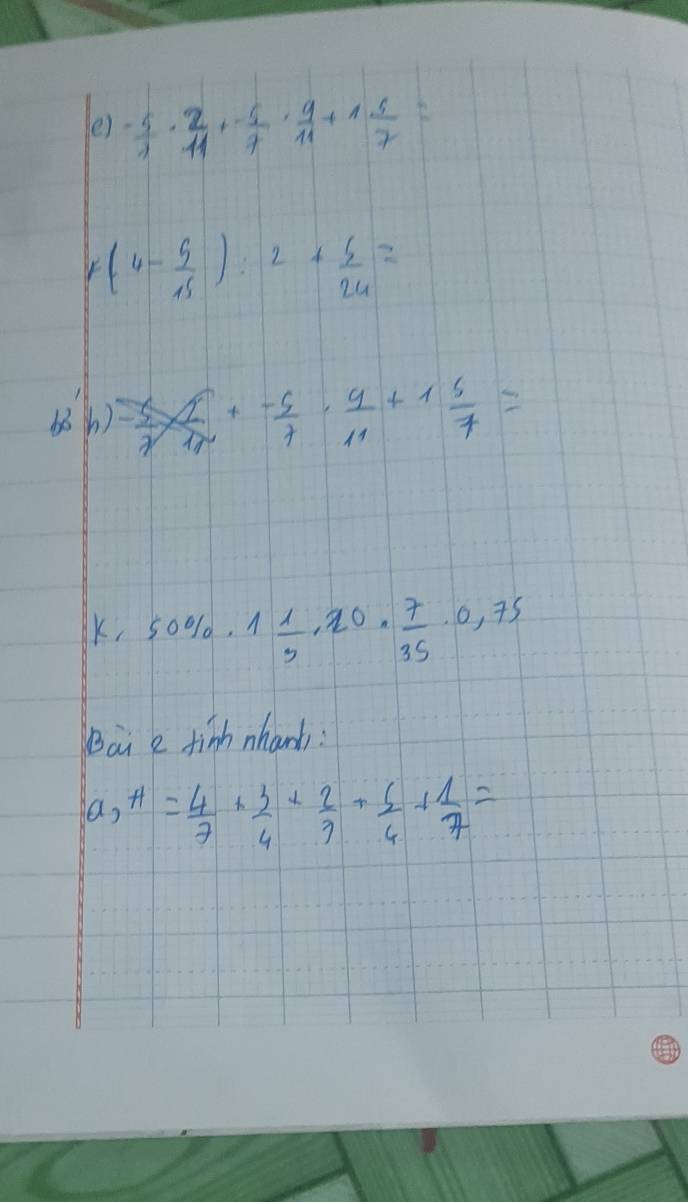 c) -5/7 . 2/11 + -5/7 . 9/11 + 1 5/7 =
(4 - 5/15) : 2 + 5/24 =
bỏ h) -5/7 2/11 + -5/7 . 9/11 + 1 5/7 =
K, 50% . 1 1/3 . 20 . 7/35 . 0,75
Bài 2 tính nhanh:
a, A = 4/7 + 3/4 + 2/7 + 5/4 + 1/7 =